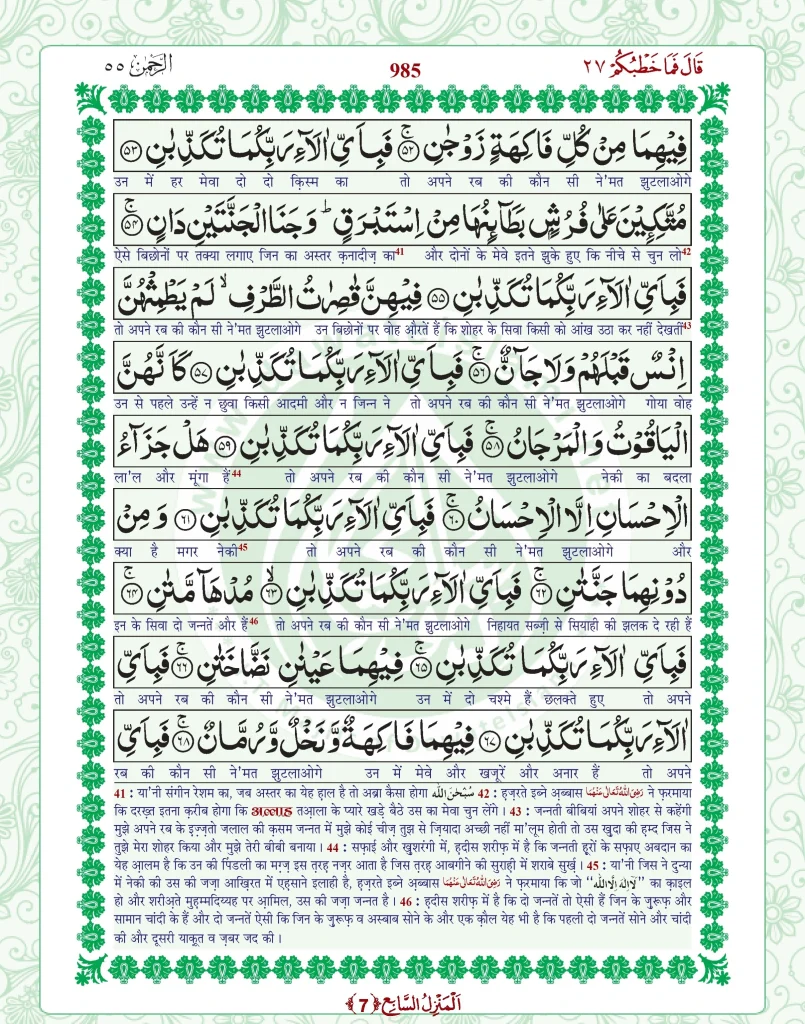 قَالَ فَمَا خَطْبُكُمْ ٢٧
985
الرَّحْمٰن ٥٥
فِيْهِمَا مِنْ كُلِّ فَاكِهَةٍ زَوْجٰنِ ۚ﴿٥٢﴾ فَبِاَيِّ اٰلَآءِ رَبِّكُمَا تُكَذِّبٰنِ ﴿٥٣﴾
उन में हर मेवा दो दो क़िस्म का तो अपने रब की कौन सी ने'मत झुटलाओगे
مُتَّكِـِٕيْنَ عَلٰى فُرُشٍۭ بَطَآىِٕنُهَا مِنْ اِسْتَبْرَقٍ ؕ وَ جَنَا الْجَنَّتَيْنِ دَانٍ ۚ﴿٥٤﴾
ऐसे बिछोनों पर तक्या लगाए जिन का अस्तर क़नादीज़ का41 और दोनों के मेवे इतने झुके हुए कि नीचे से चुन लो42
فَبِاَيِّ اٰلَآءِ رَبِّكُمَا تُكَذِّبٰنِ ﴿٥٥﴾ فِيْهِنَّ قٰصِرٰتُ الطَّرْفِ ۙ لَمْ يَطْمِثْهُنَّ
तो अपने रब की कौन सी ने'मत झुटलाओगे उन बिछोनों पर वोह औरतें हैं कि शोहर के सिवा किसी को आंख उठा कर नहीं देखतीं43
اِنْسٌ قَبْلَهُمْ وَلَا جَآنٌّ ۚ﴿٥٦﴾ فَبِاَيِّ اٰلَآءِ رَبِّكُمَا تُكَذِّبٰنِ ۚ﴿٥٧﴾ كَاَنَّهُنَّ
उन से पहले उन्हें न छुवा किसी आदमी और न जिन्न ने तो अपने रब की कौन सी ने'मत झुटलाओगे गोया वोह
الْيَاقُوْتُ وَ الْمَرْجَانُ ۚ﴿٥٨﴾ فَبِاَيِّ اٰلَآءِ رَبِّكُمَا تُكَذِّبٰنِ ﴿٥٩﴾ هَلْ جَزَآءُ
ला'ल और मूंगा हैं44 तो अपने रब की कौन सी ने'मत झुटलाओगे नेकी का बदला
الْاِحْسَانِ اِلَّا الْاِحْسَانُ ۚ﴿٦٠﴾ فَبِاَيِّ اٰلَآءِ رَبِّكُمَا تُكَذِّبٰنِ ﴿٦١﴾ وَ مِنْ
क्या है मगर नेकी45 तो अपने रब की कौन सी ने'मत झुटलाओगे और
دُوْنِهِمَا جَنَّتٰنِ ۚ﴿٦٢﴾ فَبِاَيِّ اٰلَآءِ رَبِّكُمَا تُكَذِّبٰنِ ۙ﴿٦٣﴾ مُدْهَآمَّتٰنِ ۚ﴿٦٤﴾
इन के सिवा दो जन्नतें और हैं46 तो अपने रब की कौन सी ने'मत झुटलाओगे निहायत सब्ज़ी से सियाही की झलक दे रही हैं
فَبِاَيِّ اٰلَآءِ رَبِّكُمَا تُكَذِّبٰنِ ۚ﴿٦٥﴾ فِيْهِمَا عَيْنٰنِ نَضَّاخَتٰنِ ۚ﴿٦٦﴾ فَبِاَيِّ
तो अपने रब की कौन सी ने'मत झुटलाओगे उन में दो चश्मे हैं छलक्ते हुए तो अपने
اٰلَآءِ رَبِّكُمَا تُكَذِّبٰنِ ﴿٦٧﴾ فِيْهِمَا فَاكِهَةٌ وَّ نَخْلٌ وَّ رُمَّانٌ ۚ﴿٦٨﴾ فَبِاَيِّ
रब की कौन सी ने'मत झुटलाओगे उन में मेवे और खजूरें और अनार हैं तो अपने
41 : या'नी संगीन रेशम का, जब अस्तर का येह हाल है तो अब्रा कैसा होगा سُبْحٰنَ اللّٰه 42 : ह़ज़रते इब्ने अ़ब्बास رَضِيَ اللّٰهُ تَعَالٰى عَنْهُمَا ने फ़रमाया
कि दरख़्त इतना क़रीब होगा कि तआ़ला के प्यारे खड़े बैठे उस का मेवा चुन लेंगे । 43 : जन्नती बीबियां अपने शोहर से कहेंगी
मुझे अपने रब के इ़ज़्ज़तो जलाल की क़सम जन्नत में मुझे कोई चीज़ तुझ से ज़ियादा अच्छी नहीं मा'लूम होती तो उस ख़ुदा की ह़म्द जिस ने
तुझे मेरा शोहर किया और मुझे तेरी बीबी बनाया । 44 : सफ़ाई और ख़ुशरंगी में, ह़दीस शरीफ़ में है कि जन्नती हूरों के सफ़ाए अबदान का
येह आ़लम है कि उन की पिंडली का मग़्ज़ इस त़रह़ नज़र आता है जिस त़रह़ आबगीने की सुराही में शराबे सुर्ख़ । 45 : या'नी जिस ने दुन्या
में नेकी की उस की जज़ा आख़िरत में एह़साने इलाही है, ह़ज़रते इब्ने अ़ब्बास رَضِيَ اللّٰهُ تَعَالٰى عَنْهُمَا ने फ़रमाया कि जो “لَا اِلٰهَ اِلَّا اللّٰه” का क़ाइल
हो और शरीअ़ते मुह़म्मदिय्यह पर आ़मिल, उस की जज़ा जन्नत है । 46 : ह़दीस शरीफ़ में है कि दो जन्नतें तो ऐसी हैं जिन के ज़ुरूफ़ और
सामान चांदी के हैं और दो जन्नतें ऐसी कि जिन के ज़ुरूफ़ व अस्बाब सोने के और एक क़ौल येह भी है कि पहली दो जन्नतें सोने और चांदी
की और दूसरी याक़ूत व ज़बर जद की ।
اَلْمَنْزِلُ السَّابِع ﴿7﴾